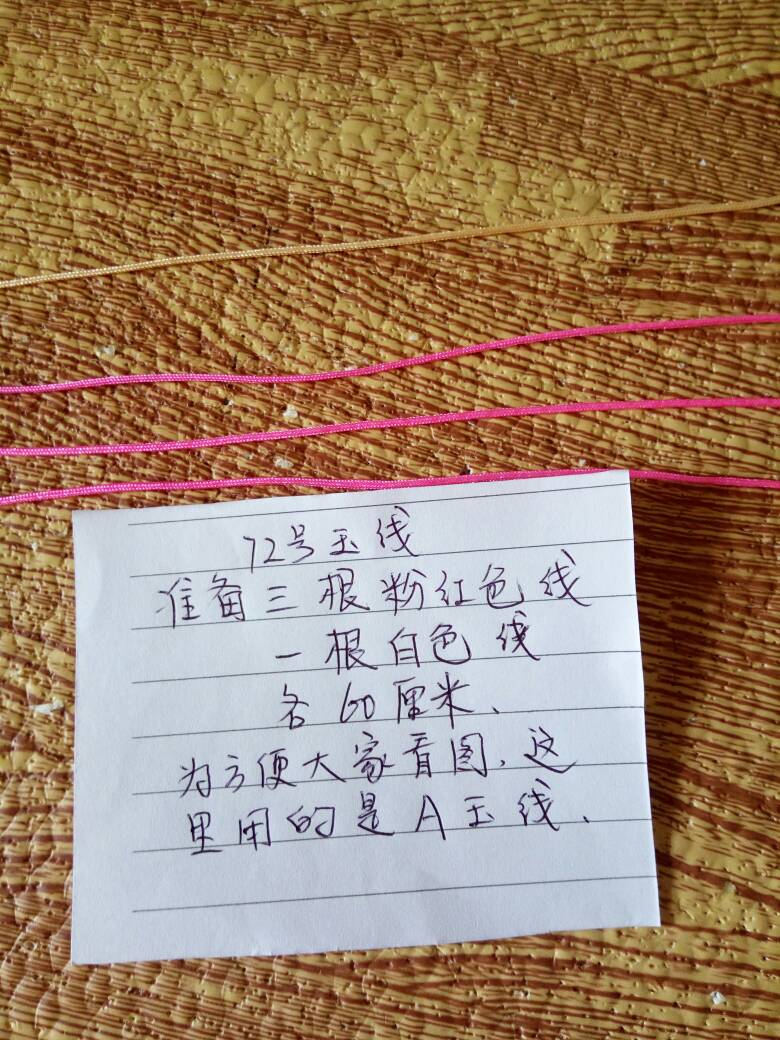 72号玉线
准备三根粉红色线
一根白色线
各60厘米、
为方便大家看图、这
里用的是A玉线、